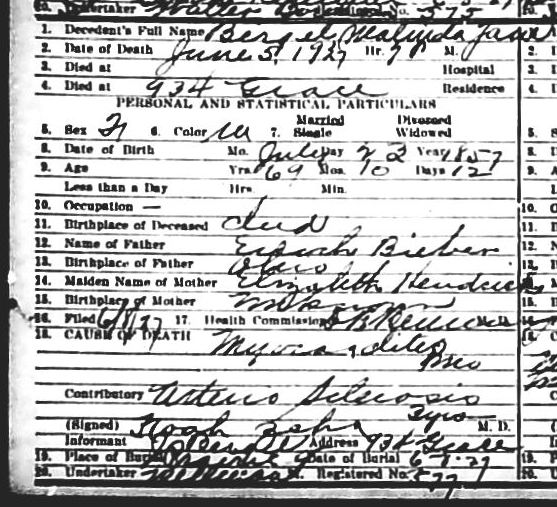 20. Undertaker Walter No. 575
1. Decedent's Full Name Bergel Malinda Jane
2. Date of Death June 5, 1927 Hr. M.
3. Died at Hospital
4. Died at 934 Grace Residence
PERSONAL AND STATISTICAL PARTICULARS
5. Sex F 6. Color W 7. Married Single Divorced Widowed
8. Date of Birth Mo. July Day 23 Year 1857
9. Age Yrs. 69 Mos. 10 Days 12
Less than a Day Hrs. Min.
10. Occupation —
11. Birthplace of Deceased Ind
12. Name of Father Enoch Bieber
13. Birthplace of Father Ohio
14. Maiden Name of Mother Elizabeth Hendricks
15. Birthplace of Mother Unknown
16. Filed 6/8/27 17. Health Commissioner M. D.
18. CAUSE OF DEATH Myocarditis
Contributory Arterio Sclerosis
3 yrs
(Signed) Noah M. D.
Informant Address 934 Grace
19. Place of Burial Date of Burial 6-7-27
20. Undertaker Registered No. 577